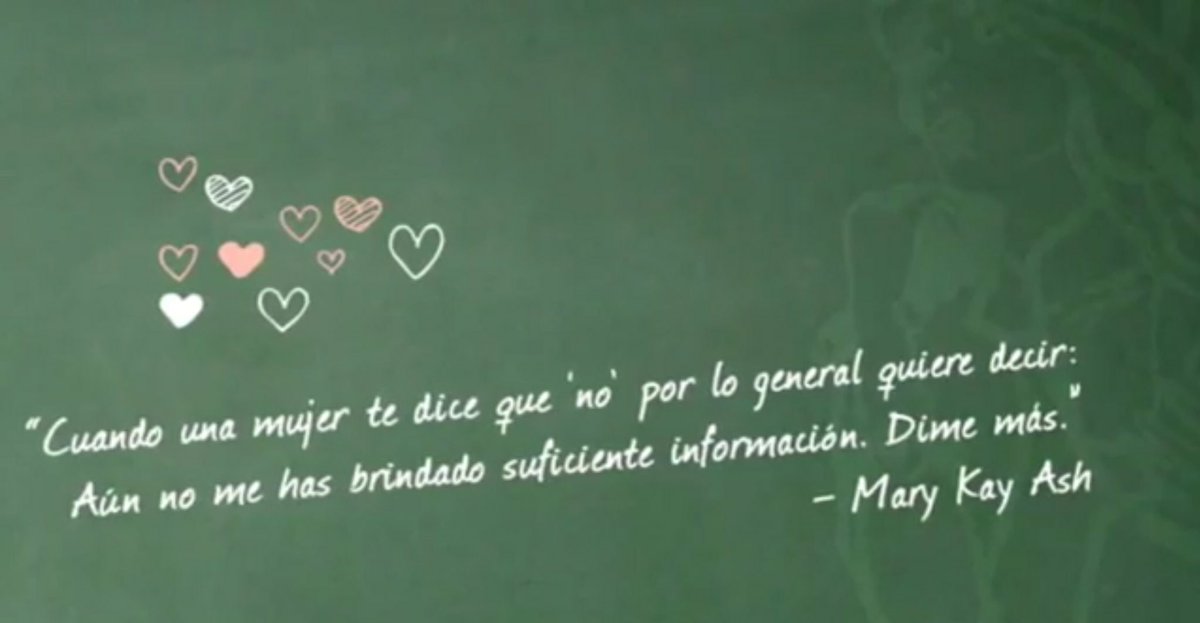 "Cuando una mujer te dice que 'no' por lo general quiere decir:
Aún no me has brindado suficiente información. Dime más."
– Mary Kay Ash